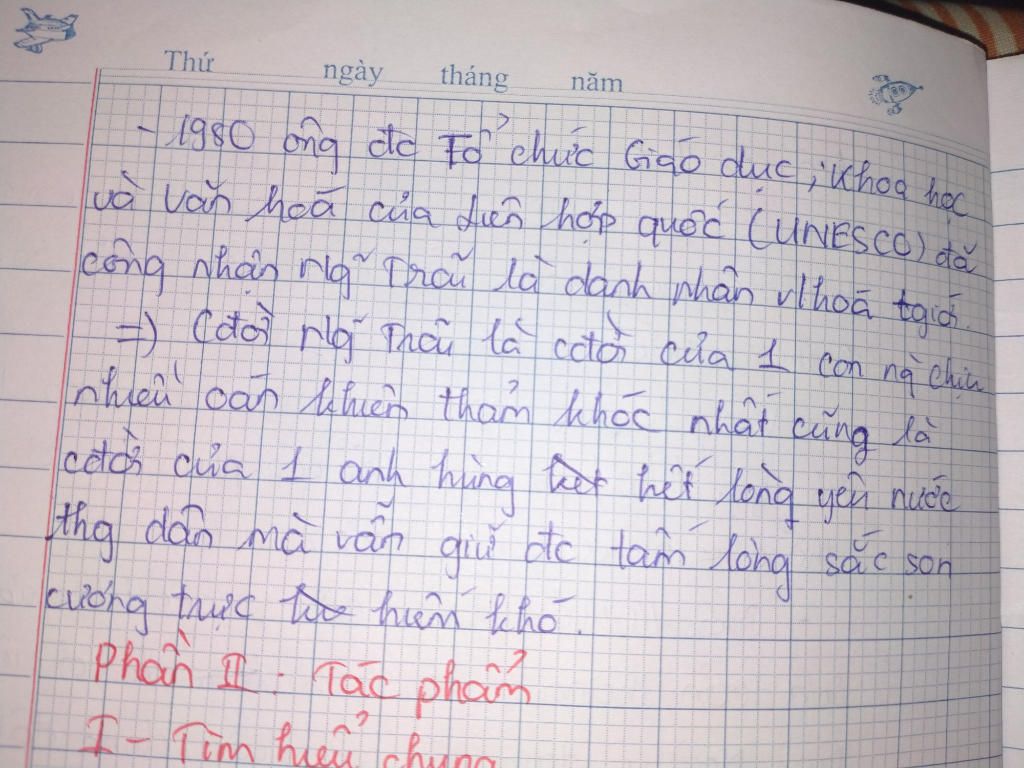 Thứ ngày tháng năm
- 1980 ông đc Tổ chức Giáo dục, Khoa học
và văn hoá của Liên hợp quốc (UNESCO) đã
công nhận Ng~ Trãi là danh nhân vhoá tgiới.
=) Cđời Ng~ Trãi là cđời của 1 con ng` chịu
nhiều oan khiên thảm khốc nhất cũng là
cđời của 1 anh hùng hết lòng yêu nước
thg dân mà vẫn giữ đc tấm lòng sắc son
cương trực hiếm khó.
Phần II: Tác phẩm
I - Tìm hiểu chung